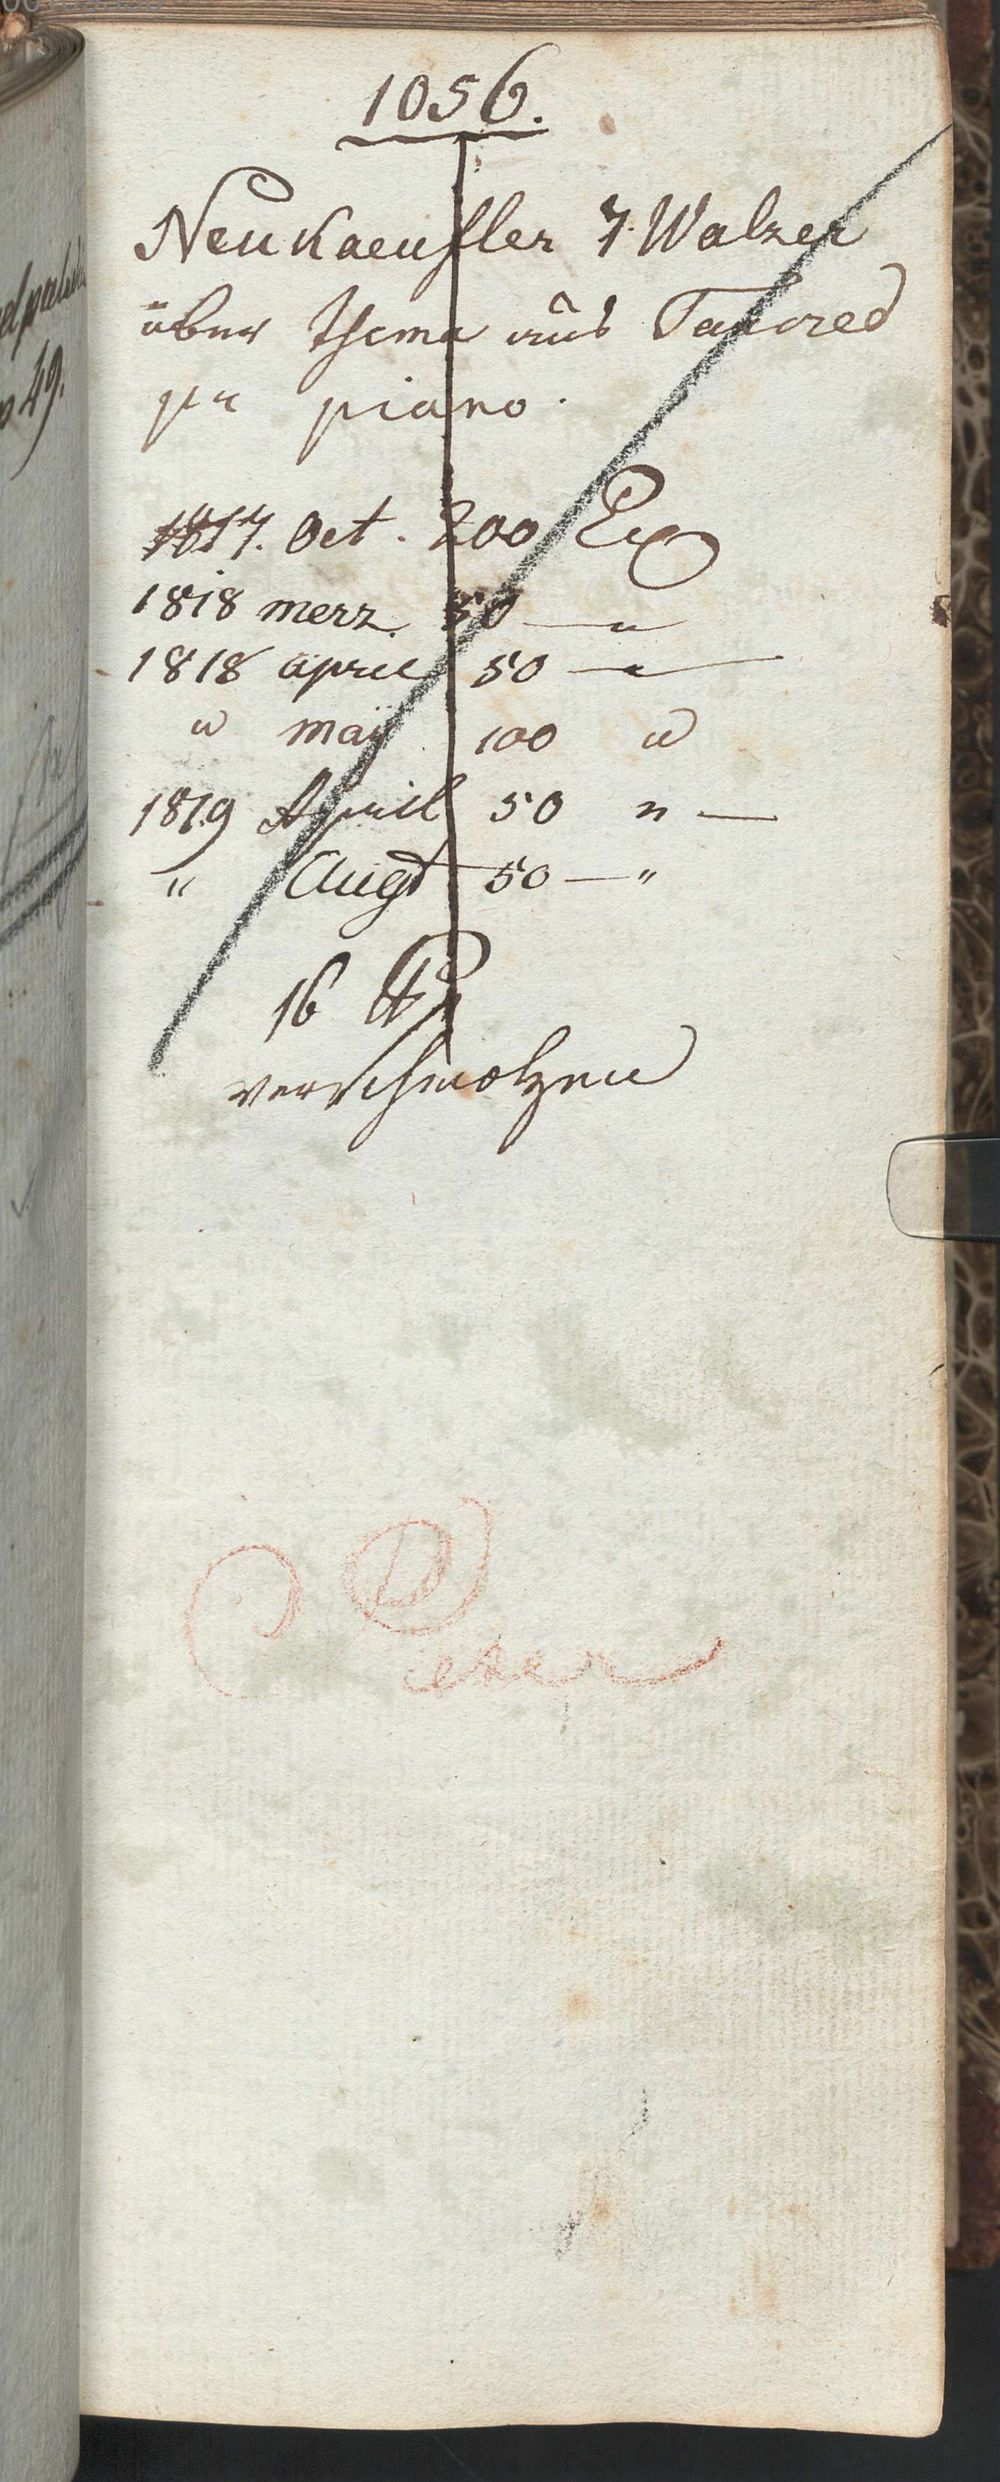 1056.
Neukaeufler 7. Walzer
über Thema aus Tancred
pr piano.
1817. Oct. 200 Ex
1818 merz. 50 — "
1818 april 50 — "
" maj 100 "
1819 April 50 " —
" Augt 50 — "
16
verschmolzen